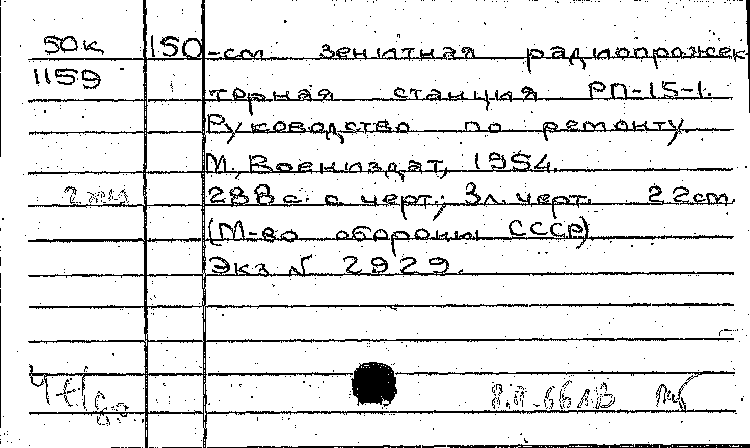 50к 150-см зенитная радиопрожек-
1159 торная станция РП-15-1.
Руководство по ремонту.
М., Воениздат, 1954.
288 с. с черт.; 3 л. черт. 22 см.
(М-во обороны СССР)
Экз. N 2929.